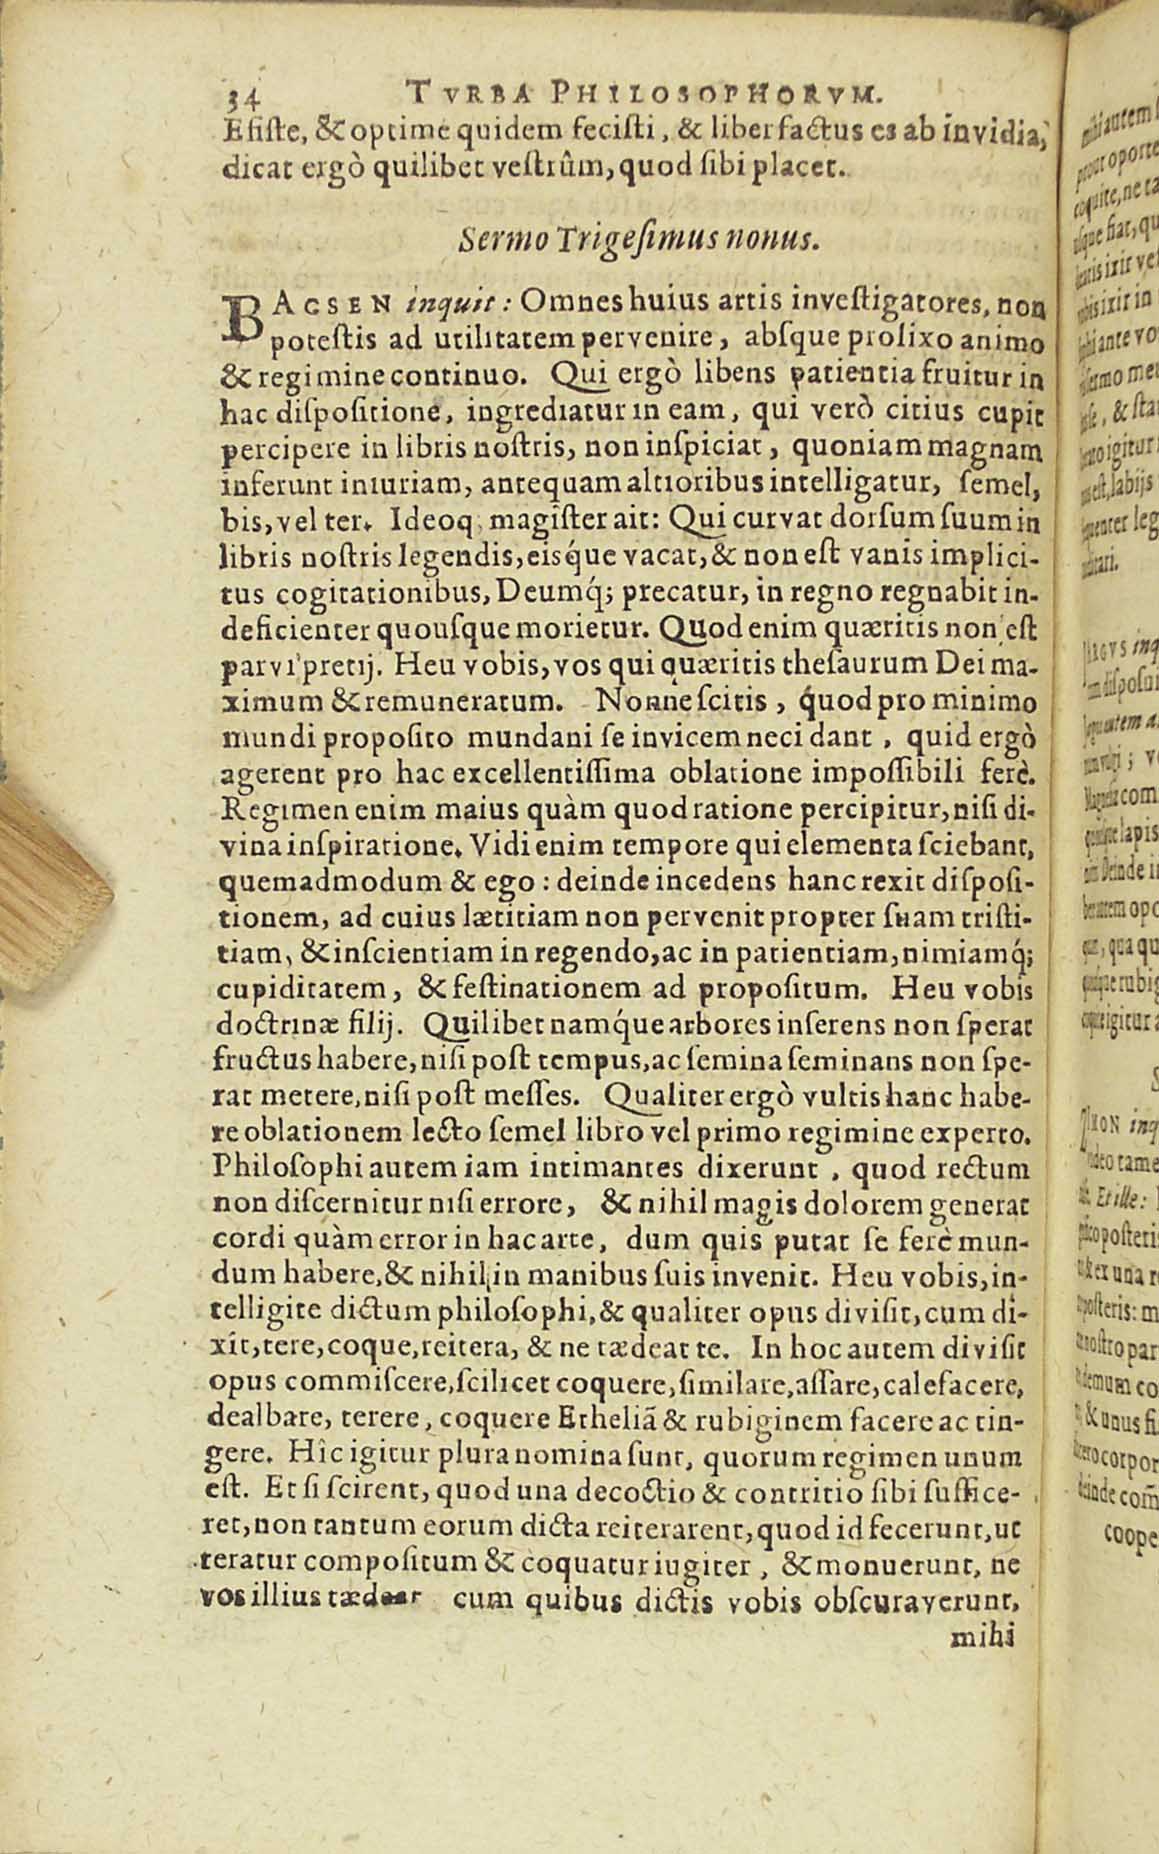 34 TVRBA PHILOSOPHORVM.
Efiſte, & optime quidem feciſti, & liber factus es ab invidia,
dicat ergò quilibet veſtrûm, quod ſibi placet.
Sermo Trigeſimus nonus.
BACSEN inquit: Omnes huius artis inveſtigatores, non
poteſtis ad utilitatem pervenire, abſque prolixo animo
& regimine continuo. Qui ergò libens patientia fruitur in
hac diſpoſitione, ingrediatur in eam, qui verò citius cupit
percipere in libris noſtris, non inſpiciat, quoniam magnam
inferunt iniuriam, antequam altioribus intelligatur, ſemel,
bis, vel ter. Ideoq; magiſter ait: Qui curvat dorſum ſuum in
libris noſtris legendis, eisq́ue vacat, & non eſt vanis implici-
tus cogitationibus, Deumq́; precatur, in regno regnabit in-
deficienter quouſque morietur. Quod enim quæritis non eſt
parvi pretij. Heu vobis, vos qui quæritis theſaurum Dei ma-
ximum & remuneratum. Nonne ſcitis, quod pro minimo
mundi propoſito mundani ſe invicem neci dant, quid ergò
agerent pro hac excellentiſſima oblatione impoſſibili ferè.
Regimen enim maius quàm quod ratione percipitur, niſi di-
vina inſpiratione. Vidi enim tempore qui elementa ſciebant,
quemadmodum & ego: deinde incedens hanc rexit diſpoſi-
tionem, ad cuius lætitiam non pervenit propter ſuam triſti-
tiam, & inſcientiam in regendo, ac in patientiam, nimiamq́;
cupiditatem, & feſtinationem ad propoſitum. Heu vobis
doctrinæ filij. Quilibet namq́ue arbores inſerens non ſperat
fructus habere, niſi poſt tempus, ac ſemina ſeminans non ſpe-
rat metere, niſi poſt meſſes. Qualiter ergò vultis hanc habe-
re oblationem lecto ſemel libro vel primo regimine experto.
Philoſophi autem iam intimantes dixerunt, quod rectum
non diſcernitur niſi errore, & nihil magis dolorem generat
cordi quàm error in hac arte, dum quis putat ſe ferè mun-
dum habere, & nihil in manibus ſuis invenit. Heu vobis, in-
telligite dictum philoſophi, & qualiter opus diviſit, cum di-
xit, tere, coque, reitera, & ne tædeat te. In hoc autem diviſit
opus commiſcere, ſcilicet coquere, ſimilare, aſſare, calefacere,
dealbare, terere, coquere Etheliã & rubiginem facere ac tin-
gere. Hîc igitur plura nomina ſunt, quorum regimen unum
eſt. Et ſi ſcirent, quod una decoctio & contritio ſibi ſuffice-
ret, non tantum eorum dicta reiterarent, quod id fecerunt, ut
teratur compoſitum & coquatur iugiter, & monuerunt, ne
vos illius tædeat cum quibus dictis vobis obſcuraverunt,
mihi